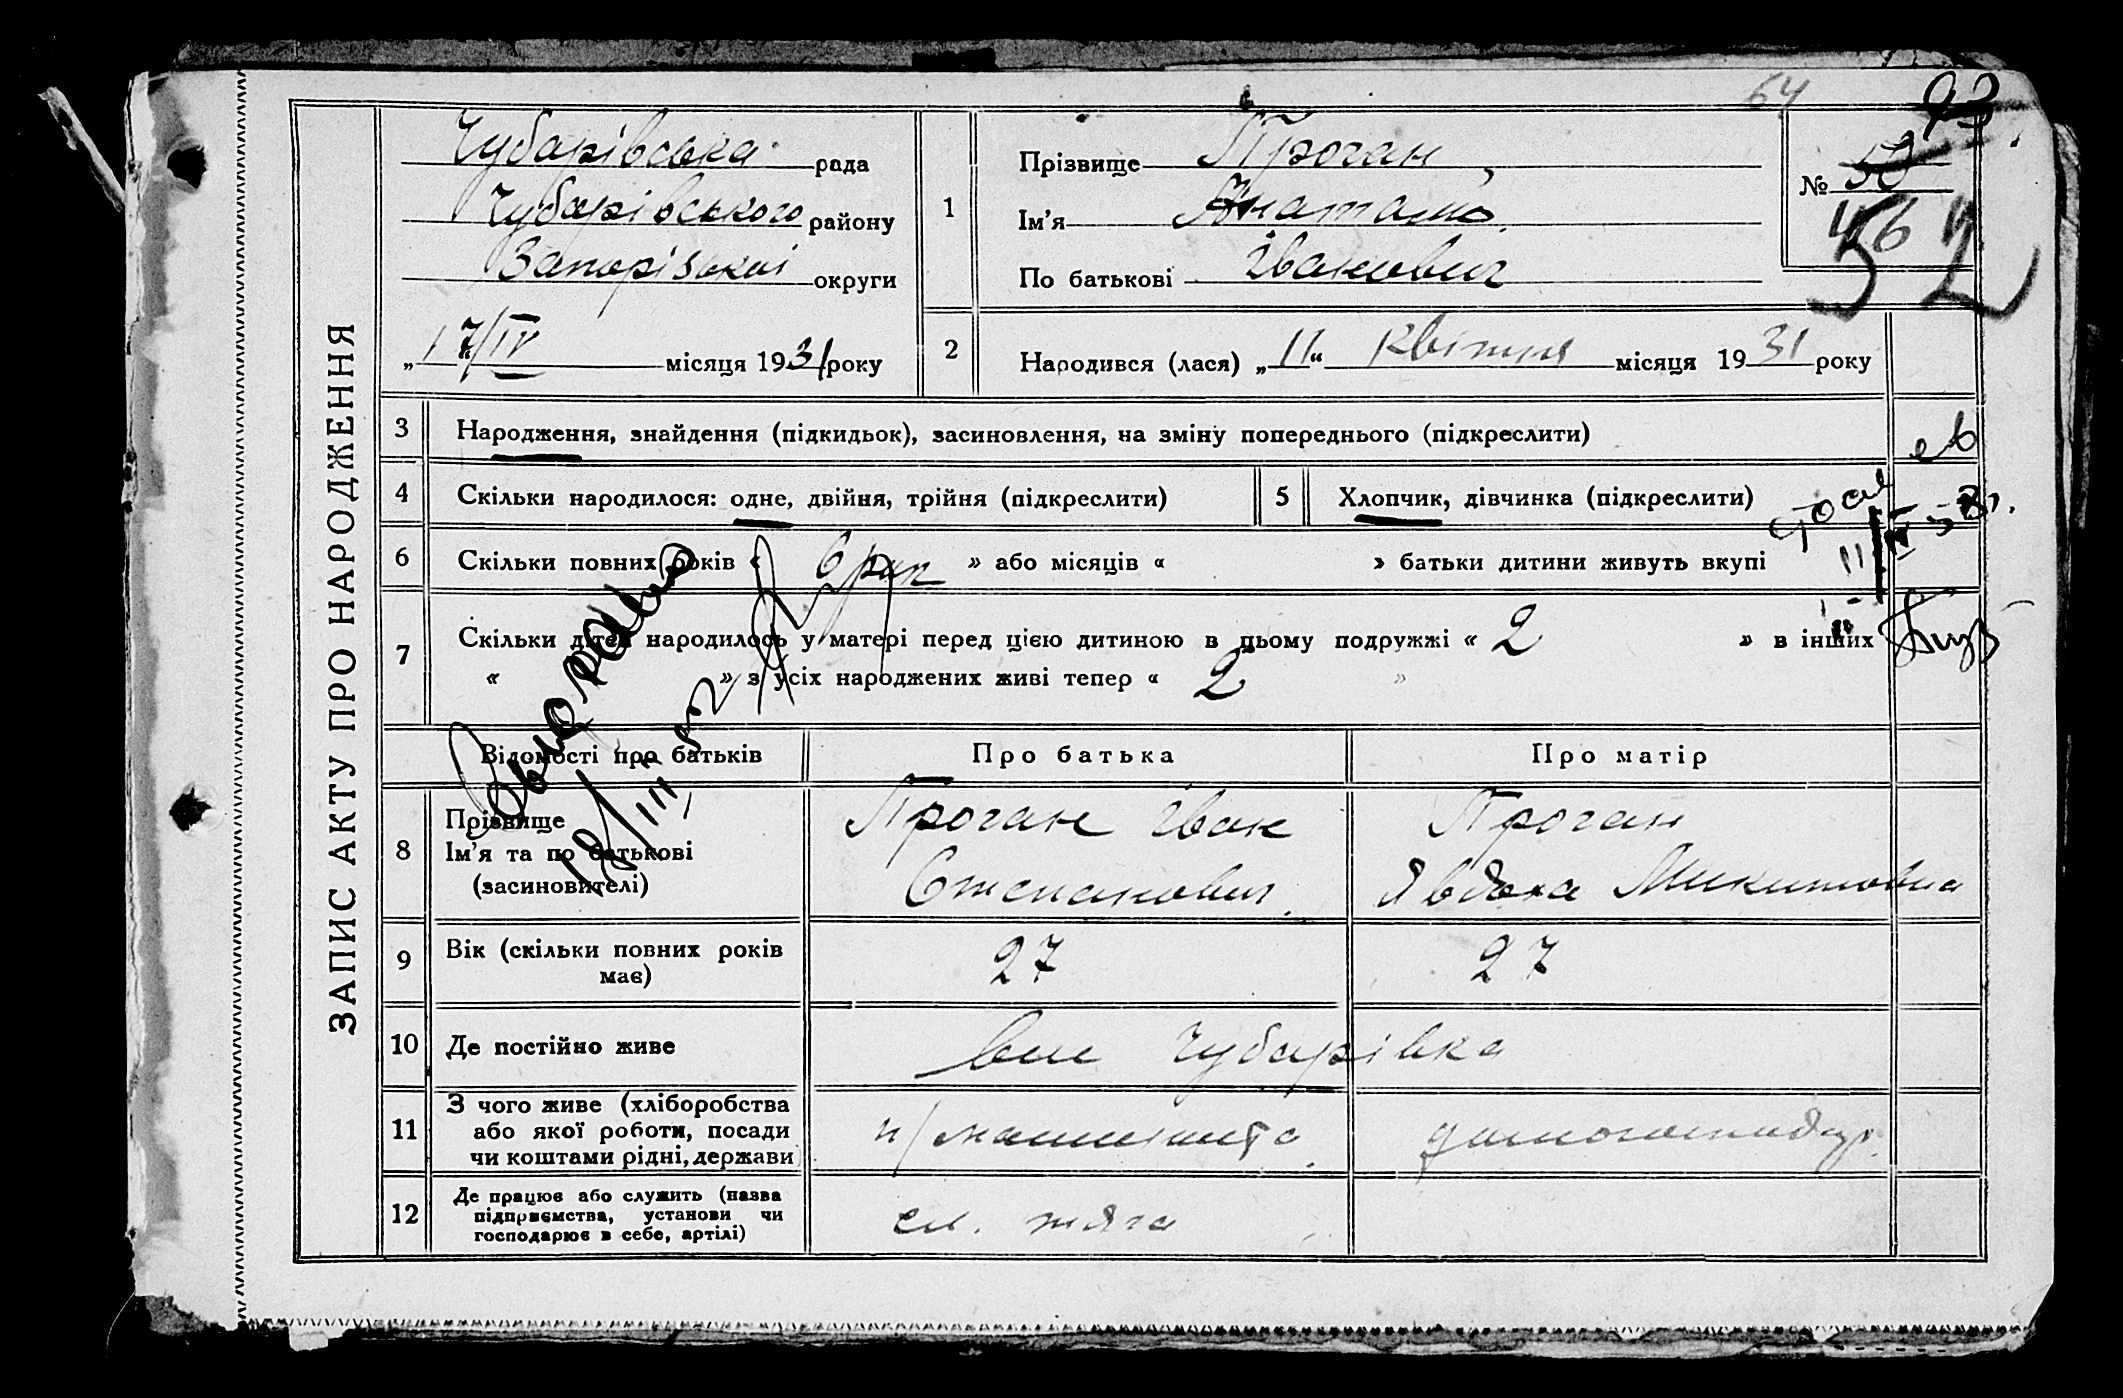 64
93
ЗАПИС АКТУ ПРО НАРОДЖЕННЯ
Чубарівська рада
Чубарівського району
Запорізької округи
„17/IV місяця 1931 року
1
Прізвище Проган
Ім'я Анатолій
По батькові Іванович
№ 50
46
52
2
Народився (лася) „11“ Квітня місяця 1931 року
3 Народження, знайдення (підкидьок), засиновлення, на зміну попереднього (підкреслити)
4 Скільки народилося: одне, двійня, трійня (підкреслити)
5 Хлопчик, дівчинка (підкреслити)
6 Скільки повних років « 6 рок » або місяців « » батьки дитини живуть вкупі
7 Скільки дітей народилось у матері перед цією дитиною в цьому подружжі « 2 » в інших
« » з усіх народжених живі тепер « 2 »
18/III 52
Відомості про батьків
Про батька
Про матір
8 Прізвище
Ім'я та по батькові
(засиновителі)
Проган Іван
Степанович
Проган
Явдоха Микитовна
9 Вік (скільки повних років
має)
27
27
10 Де постійно живе
Чубарівка
11 З чого живе (хліборобства
або якої роботи, посади
чи коштами рідні, держави
п/машиніста
домогосподар.
12 Де працює або служить (назва
підприємства, установи чи
господарює в себе, артілі)
сл. тяга